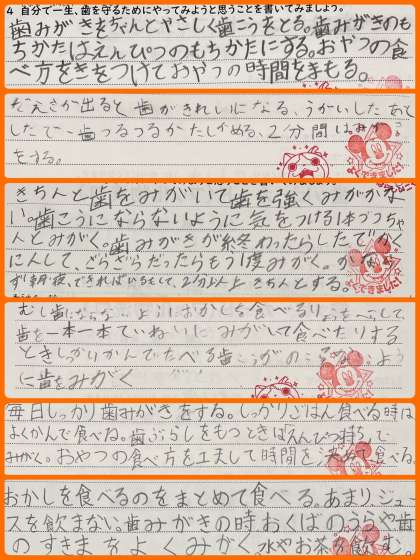 4 自分で一生、歯を守るためにやってみようと思うことを書いてみましょう。
歯みがきをちゃんとやさしく歯こうをとる。歯みがきのも
ちかたはえんぴつのもちかたにする。おやつの食
べ方をきをつけておやつの時間をまもる。
だえきが出ると歯がきれいになる、うがいしたあと
したで歯つるつるかたしかめる、2分間はみがき
をする。
きちんと歯をみがいて歯を強くみがかな
い。歯こうにならないように気をつける1本づつちゃ
んとみがく。歯みがきが終わったらしたでかく
にんして、ざらざらだったらもう1度みがく。かなら
ず朝・夜、できればひるもして、2分以上きちんとする。
むし歯にならないようにおかしを食べるりょうをへらして、
歯を一本一本ていねいにみがいて食べたりする
ときしっかりかんでたべる歯こうがのこらないよう
に歯をみがく
よくできました!
毎日しっかり歯みがきをする。しっかりごはん食べる時は
よくかんで食べる。歯ぶらしをもつときはえんぴつ持ちで
みがく。おやつの食べ方を工夫して時間を決めて食べる。
おかしを食べるのをまとめて食べる。あまりジュー
スを飲まない。歯みがきの時おくばのうらや歯
のすきまをよくみがく。水やお茶を飲む。